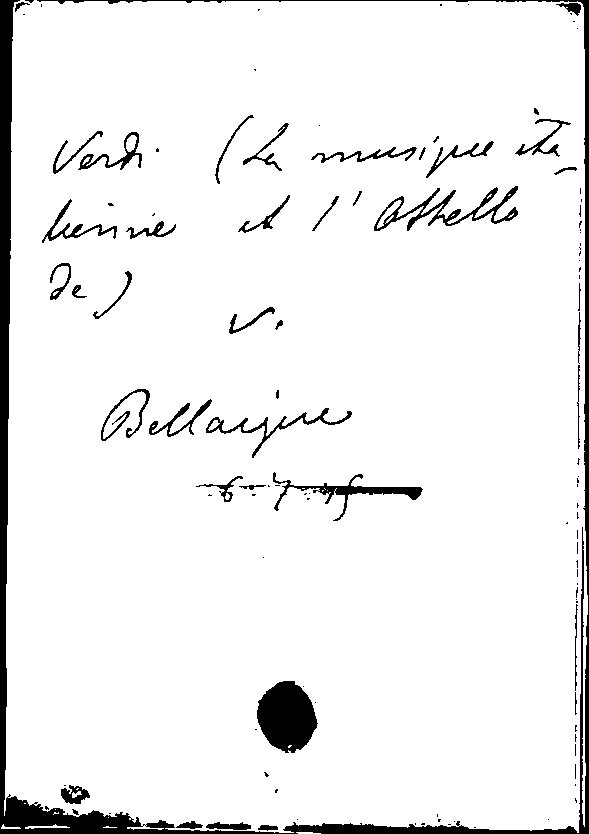 Verdi (La musique ita-
lienne et l'Othello
de)
V.
Bellaigue